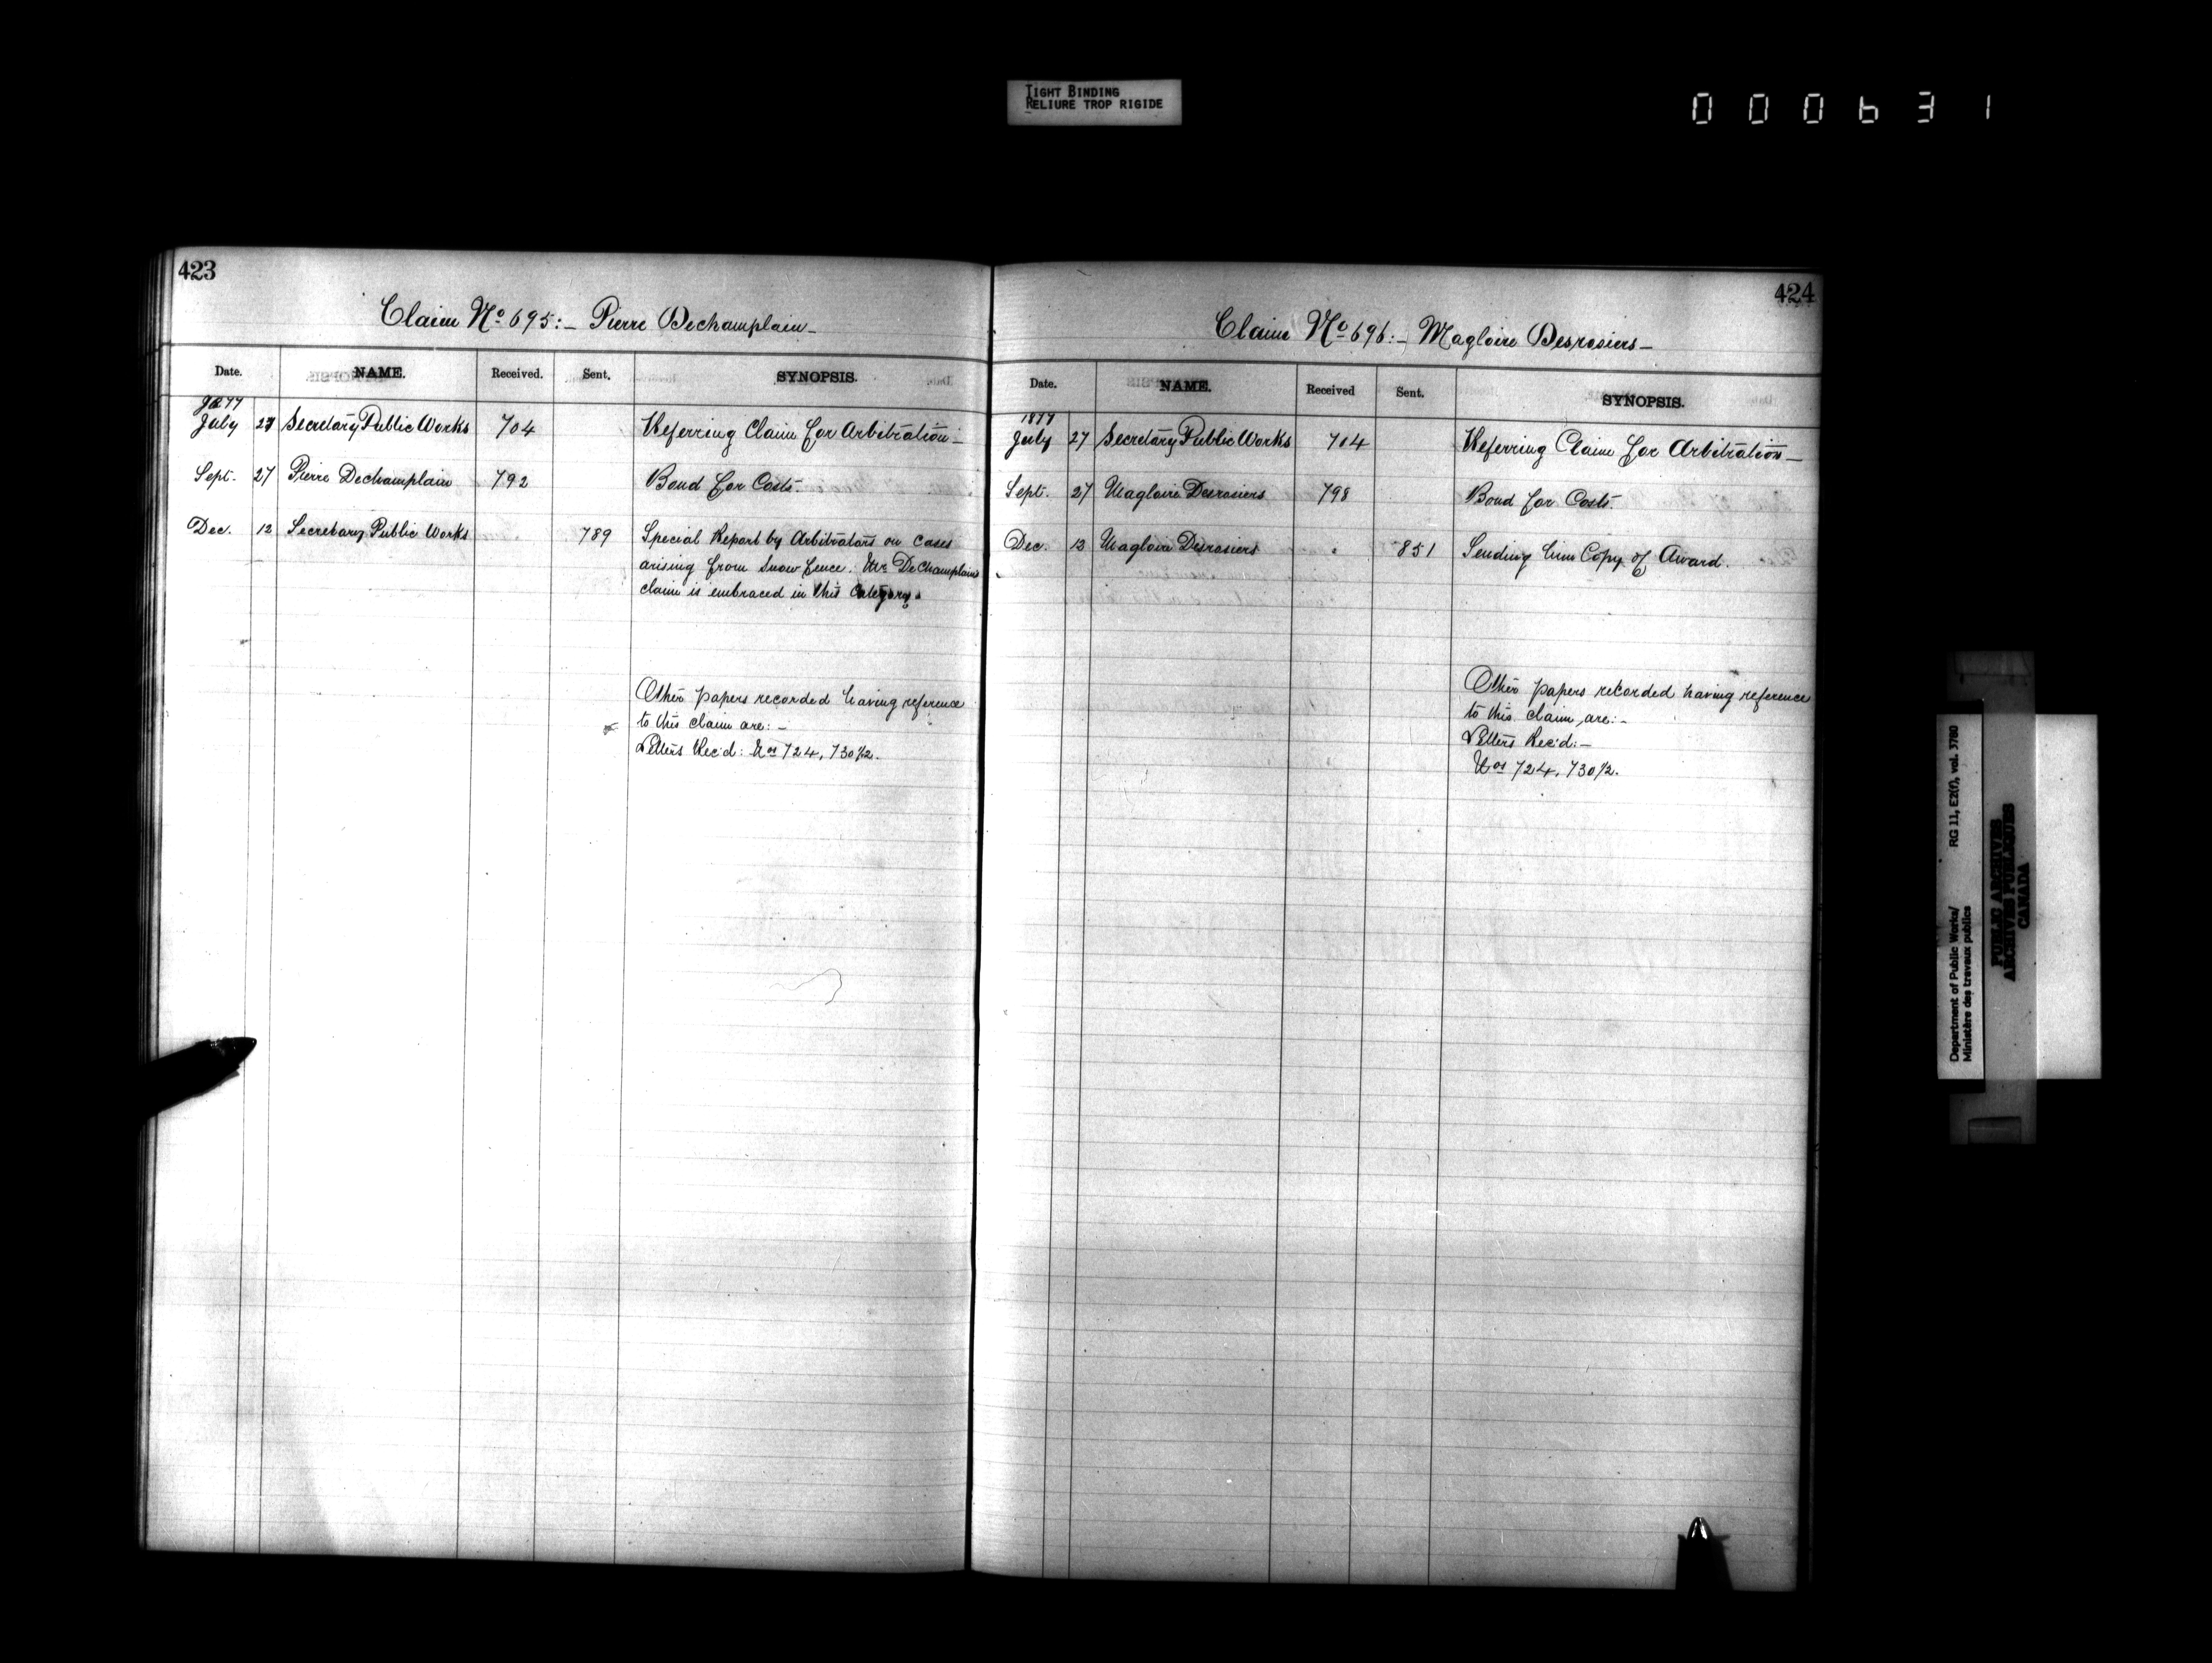 TIGHT BINDING
RELIURE TROP RIGIDE
000631
423
Claim No 695:- Pierre Dechamplain-
Date. NAME. Received. Sent. SYNOPSIS.
1877
July 27 Secretary Public Works 704 Referring Claim for Arbitration-
Sept. 27 Pierre Dechamplain 792 Bond for Costs.
Dec. 12 Secretary Public Works 789 Special Report by Arbitrators on cases
arising from snow fence. Mr. DeChamplain's
claim is embraced in this Category.
Other papers recorded having reference
to this claim are:-
Letters Rec'd: Nos 724, 730 1/2.
424
Claim No 696:- Magloire Desrosiers-
Date. NAME. Received Sent. SYNOPSIS.
1877
July 27 Secretary Public Works 704 Referring Claim for Arbitration-
Sept. 27 Magloire Desrosiers 798 Bond for Costs.
Dec. 13 Magloire Desrosiers 851 Sending him Copy of Award.
Other papers recorded having reference
to this claim are:-
Letters Rec'd:-
Nos 724, 730 1/2.
Department of Public Works/ RG 11, E2(f), vol. 3780
Ministère des travaux publics
PUBLIC ARCHIVES
ARCHIVES PUBLIQUES
CANADA